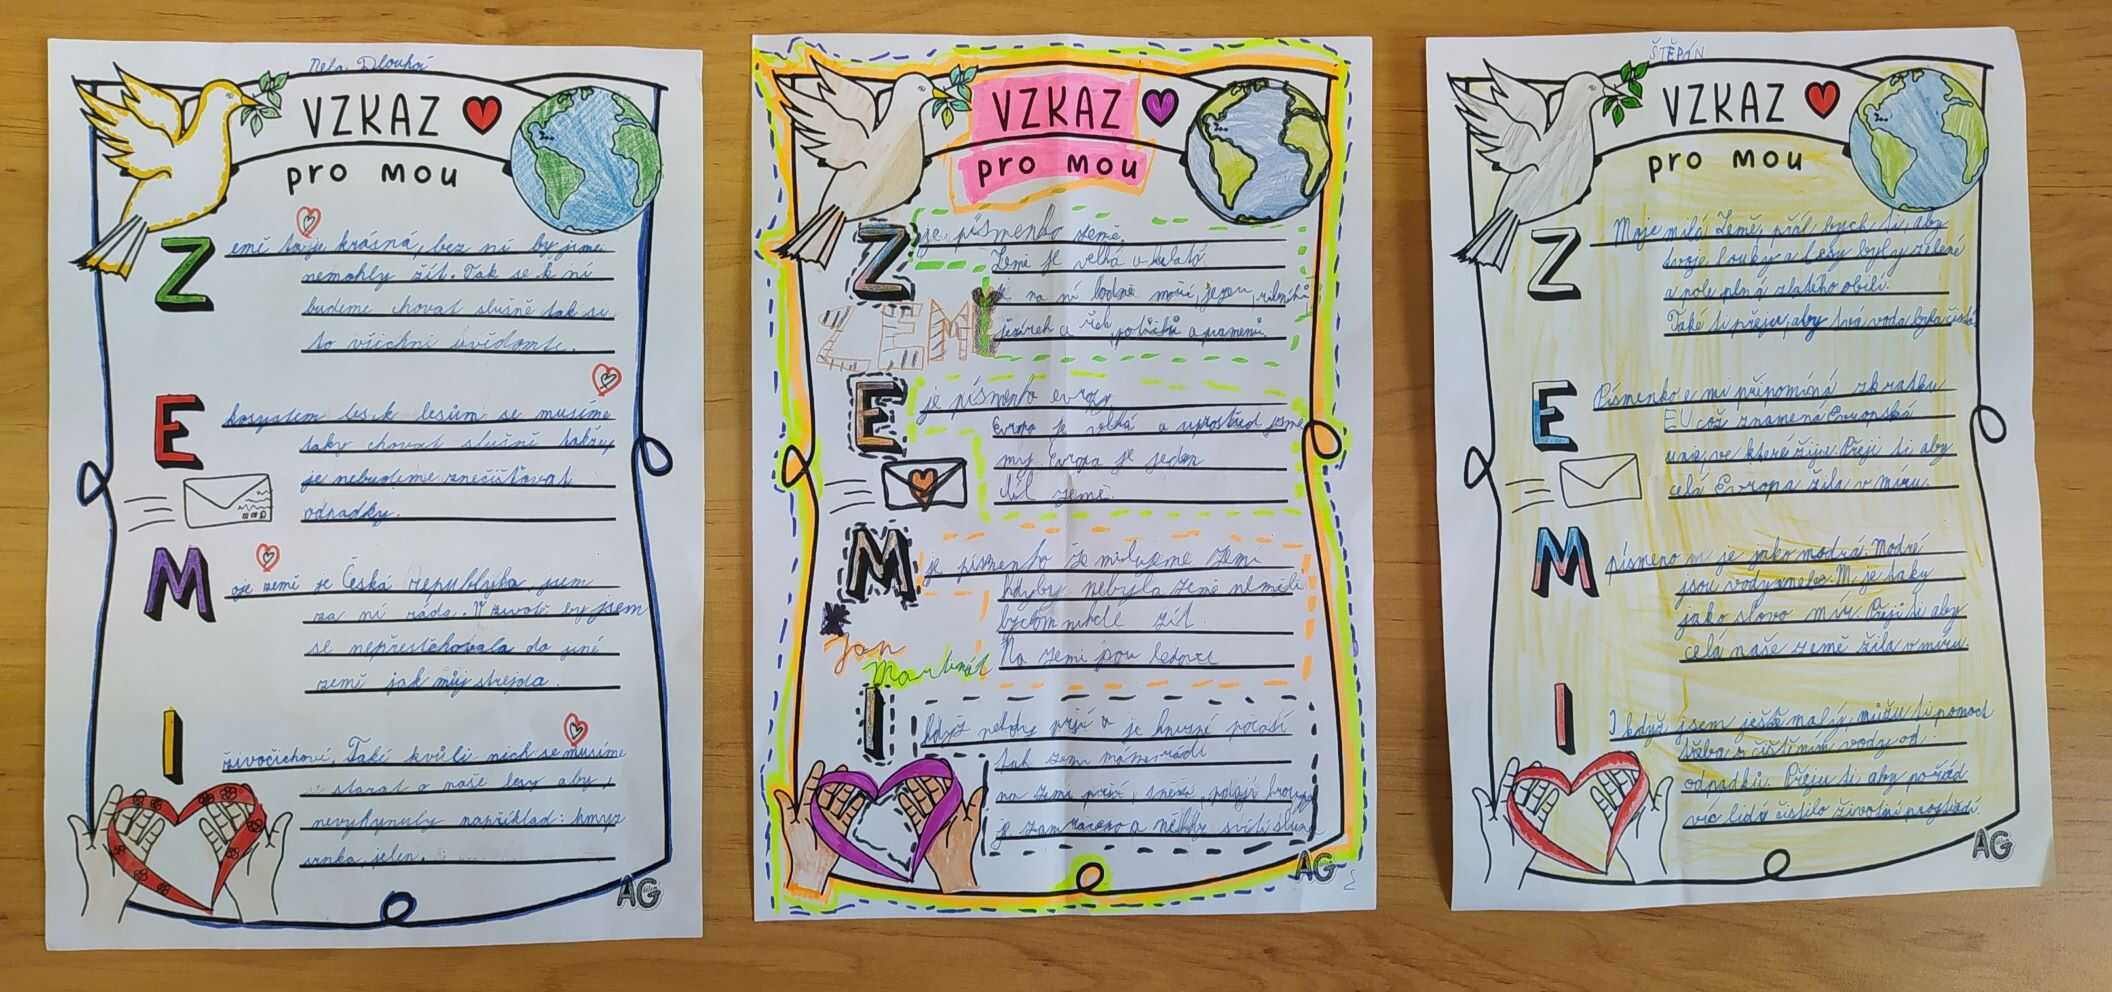 Nela Dlouhá
VZKAZ
pro mou
Z emě ta je krásná, bez ní by jsme
nemohly žít. Tak se k ní
budeme chovat slušně tak si
to všichni uvědomte.
E kosystem les, k lesům se musíme
taky chovat slušně takže,
je nebudeme znečišťovat
odpadky.
M oje země je Česká republyka jsem
za ní ráda. V životě by jsem
se nepřestěhovala do jiné
země jak můj strejda.
I živočichové. Také kvůli nich se musíme
starat o naše lesy aby
nevyhynuly například: hmyz
srnka, jelen.
AG
VZKAZ
pro mou
Z je písmenko země,
Země je velká a kulatá
je na ní hodně moří, jezer, rybníků
jezírek a řek, potůčků a pramenů.
ZEMĚ
E je písmenko evropy
Evropa je velká a uprostřed jsme
my Evropa je jeden
díl země.
M je písmenko že milujeme zemi
kdyby nebyla země neměli
bychom kde žít.
Na zemi jsou ledovce
Jan
I když někdy prší a je hnusné počasí
tak zemi máme rádi
na zemi prší, sněží, padají kroupy
je zamračeno a někdy svítí slunce
AG
ŠTĚPÁN
VZKAZ
pro mou
Z Moje milá Země, přál bych ti, aby
tvoje louky a lesy byly zelené
a pole plná zlatého obilí.
Také ti přeju, aby tvá voda byla čistá.
E Písmenko e mi připomíná zkratku
EU což znamená Evropská
unie, ve které žiju. Přeji ti aby
celá Evropa žila v míru.
M písmeno m je jako modrá. Modré
jsou vody a nebe. M je taky
jako slovo mír. Přeji ti aby
celá naše země žila v míru.
I I když jsem ještě malý, můžu ti pomoct
třeba s čištěním vody od
odpadků. Přeju ti, aby pořád
víc lidí čistilo životní prostředí.
AG